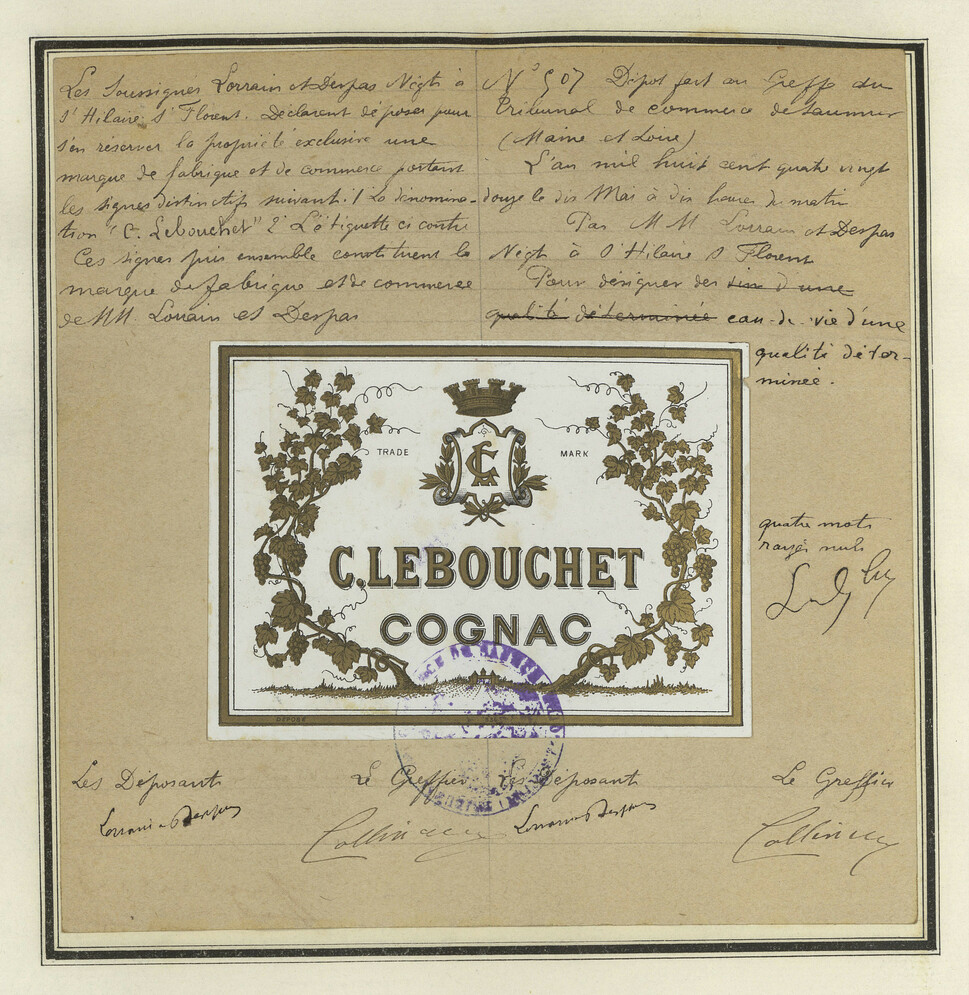 Les Soussignés Lorrain et Despas Négts à
St Hilaire St Florent. Déclarent déposer pour
s'en réserver la propriété exclusive une
marque de fabrique et de commerce portant
les signes distinctifs suivant. 1 La dénomina-
tion "C. Lebouchet" 2° L'étiquette ci contre
Ces signes pris ensemble constituent la
marque de fabrique et de commerce
de MM Lorrain et Despas
N° 507 Dépot fait au Greffe du
Tribunal de commerce de Saumur
(Maine et Loire)
L'an mil huit cent quatre vingt
douze le dix Mai à dix heures du matin
Par MM Lorrain et Despas
Négts à St Hilaire St Florent
Pour désigner des vin d'une
qualité déterminée eau-de-vie d'une
qualité déter-
minée.
TRADE MARK
C. LEBOUCHET
COGNAC
DÉPOSÉ
quatre mots
rayés nuls
Les Déposants
Le Greffier
Les Déposants
Le Greffier
Lorrain & Despas
Lorrain & Despas